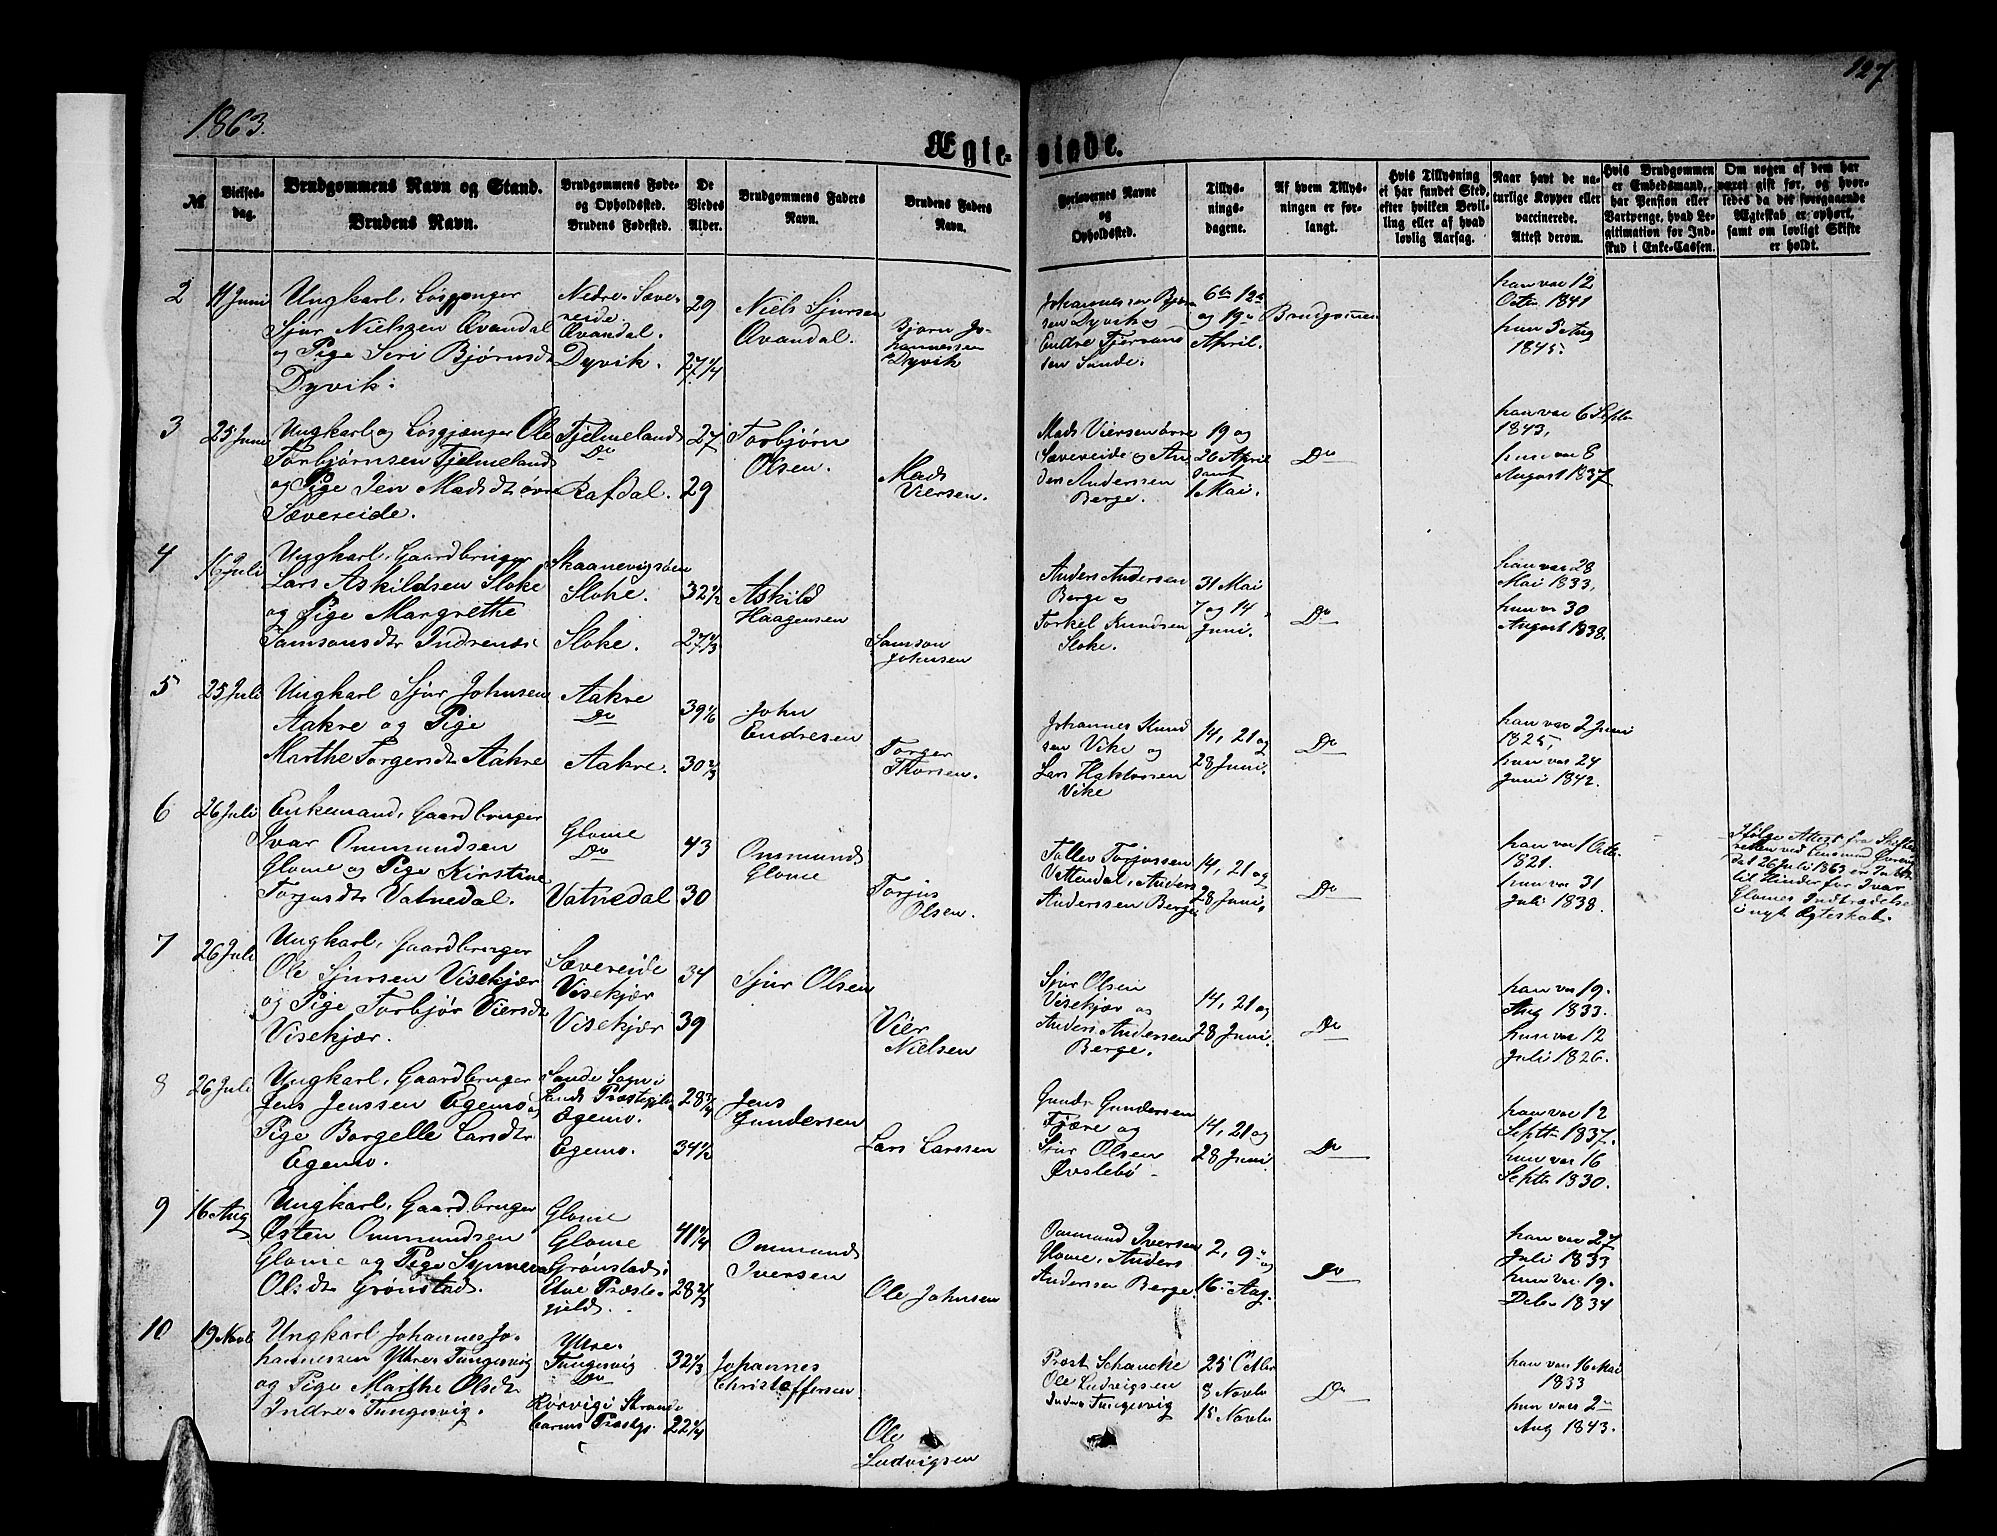 127.
1863.
Ægte-viede.
№
Vielses-dag.
Brudgommens Navn og Stand.
Brudens Navn.
Brudgommens Føde-
og Opholdsted.
Brudens Fødested.
De
Viedes
Alder.
Brudgommens Faders
Navn.
Brudens Faders
Navn.
Forlovernes Navne
og
Opholdsted.
Tillys-
nings-
dagene.
Af hvem Tillys-
ningen er for-
langt.
Hvis Tillysning
ei har fundet Sted,
efter hvilken Bevil-
ling eller af hvad
lovlig Aarsag.
Naar havt de na-
turlige Kopper eller
vaccinerede.
Attest derom.
Hvis Brudgommen
er Embedsmand,
har Pension eller
Vartpenge, hvad Le-
gitimation for Ind-
skud i Enke-Cassen.
Om nogen af dem har
været gift før, og hvor-
ledes da det foregaaende
Ægteskab er ophørt,
samt om lovligt Skifte
er holdt.
2
11 Juni
Ungkarl, Løsgjænger
Sjur Nielsen Øvandal
og Pige Seri Bjørnsdt
Dyvik.
Nedre-Sæve-
reide.
Øvandal.
Dyvik.
29
27 1/4
Niels Sjursen
Øvandal.
Bjørn Jo-
hannessen
Dyvik
Johannessen Bjørn
sen Dyvik og
Endre
sen Sunde.
6te 12te
og 19de
April.
Brudgommen
han var 12
Octbr 1841
hun 5 Aug
1845.
3
25 Juni
Ungkarl og Løsgjænger Ole
Torbjørnsen Fjelmeland
og Pige Jen Madsdt øvre
Sævereide.
Fjelmeland
Do
Rafdal.
27
29
Torbjørn
Olsen.
Mads
Viersen.
Mads Viersen øvre
Sævereide og An
ders Anderssen
Berge.
19 og
26 April
samt
1 Mai.
Do
han var 6 Septbr
1843,
hun var 8
August 1837
4
16 Juli
Ungkarl, Gaardbruger
Lars Askildsen Sloke
og Pige Margrethe
Samsonsdtr Indrenæs
Skaanevig
Sloke.
Sloke.
32 1/2
27 1/3
Askild
Haagensen
Samson
Johnsen
Anders Andersen
Berge og
Torkel Knudsen
Sloke.
31 Mai
7 og 14
Juni.
Do
han var 28
Mai 1833,
hun var 30
August 1838.
5
25 Juli
Ungkarl Sjur Johnsen
Aakre og Pige
Marthe Torgersdt Aakre
Aakre
Do
Aakre.
39 1/6
30 2/3
John
Endresen
Torger
Thorsen.
Johannes Knud
sen Vike og
Lars
Vike
14, 21 og
28 Juni.
Do
han var 2 Juni
1825,
hun var 24
Juni 1842.
6
26 Juli
Enkemand, Gaardbruger
Ivar Ommundsen
Glome og Pige Kirstine
Torjusdtr Vatnedal.
Glome
Do
Vatnedal
43
30
Ommund
Glome
Torjus
Olsen.
Tollev Torjussen
Vattendal, Anders
Anderssen Berge
14, 21 og
28 Juni.
Do
han var 1 Octbr.
1821.
hun var 31
Juli 1838.
Ifølge Attest fra Skifte
retten ved
dat 26 Juli 1863 er Intet
til Hinder for Ivar
Glomes Indtrædelse
i nyt Ægteskab.
7
26 Juli
Ungkarl, Gaardbruger
Ole Sjursen Visekjær
og Pige Torbjør Viersdt
Visekjær.
Sævereide
Visekjær
Visekjær
34
39
Sjur Olsen
Vier
Nielsen
Sjur Olsen
Visekjær og
Anders Anderssen
Berge.
14, 21 og
28 Juni.
Do
han var 19.
Aug 1833.
hun var 12
Juli 1826.
8
26 Juli
Ungkarl, Gaardbruger
Jens Jenssen Egemo og
Pige Borgelle Larsdtr
Egemo.
Sande Sogn i
Sands Præstegjld.
Egemo.
Egemo.
28 3/4
34 1/2
Jens
Gundersen
Lars Larssen
Gundr Gundersen
Fjære og
Sjur Olsen
Øvslebø
14, 21 og
28 Juni
Do
han var 12
Septbr 1837.
hun var 16
Septbr 1830.
9
16 Aug
Ungkarl, Gaardbruger
Østen Ommundsen
Glome og Pige Synneva
Olsdtr Grønstad.
Glome
Glome
Grønstad i
Etne Præste-
gjeld.
41 1/4
28 2/3
Ommund
Iversen
Ole Johnsen
Ommund Iversen
Glome, Anders
Anderssen Berge.
2, 9de og
16de Aug.
Do
han var 27
Juli 1833
hun var 19.
Debr 1834
10
19 Novb
Ungkarl Johannes Jo-
hannessen Yttre Tungesvig
og Pige Marthe Olsdt
Indre Tungesvig.
Yttre-
Tungesvig
Do
Rørvig i Strande
barms Præstgj.
32 1/3
22 1/4
Johannes
Christoffersen
Ole
Ludvigsen
Prost Schancke
Ole Ludvigsen
Indre Tungesvig
25 Octbr
8 Novbr
15 Novbr
Do
han var 16 Mai
1833
hun var 2den
Aug 1843.